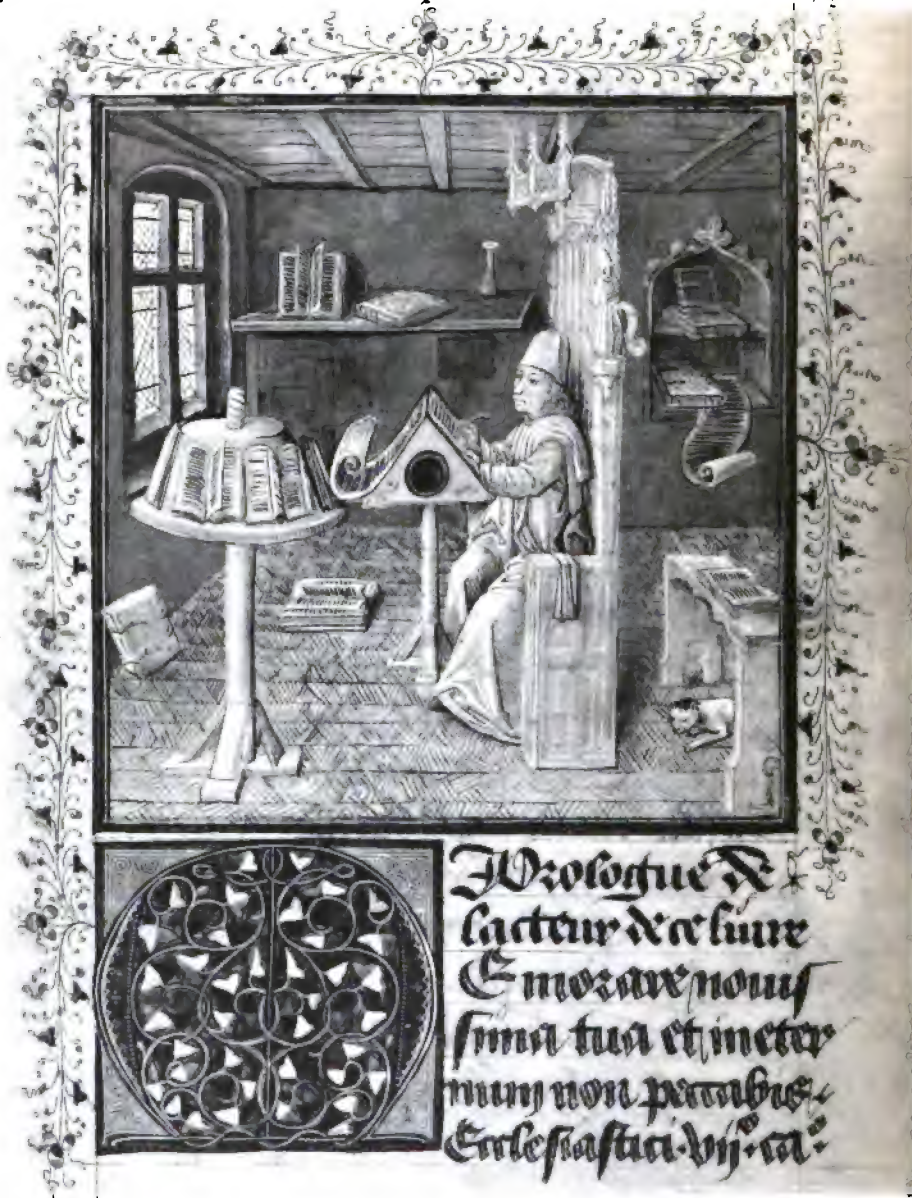 Prologue de
lacteur de ce liure
MEmorare nouis
sima tua et in eter
num non peccabis
Ecclesiastici·vij·ca·